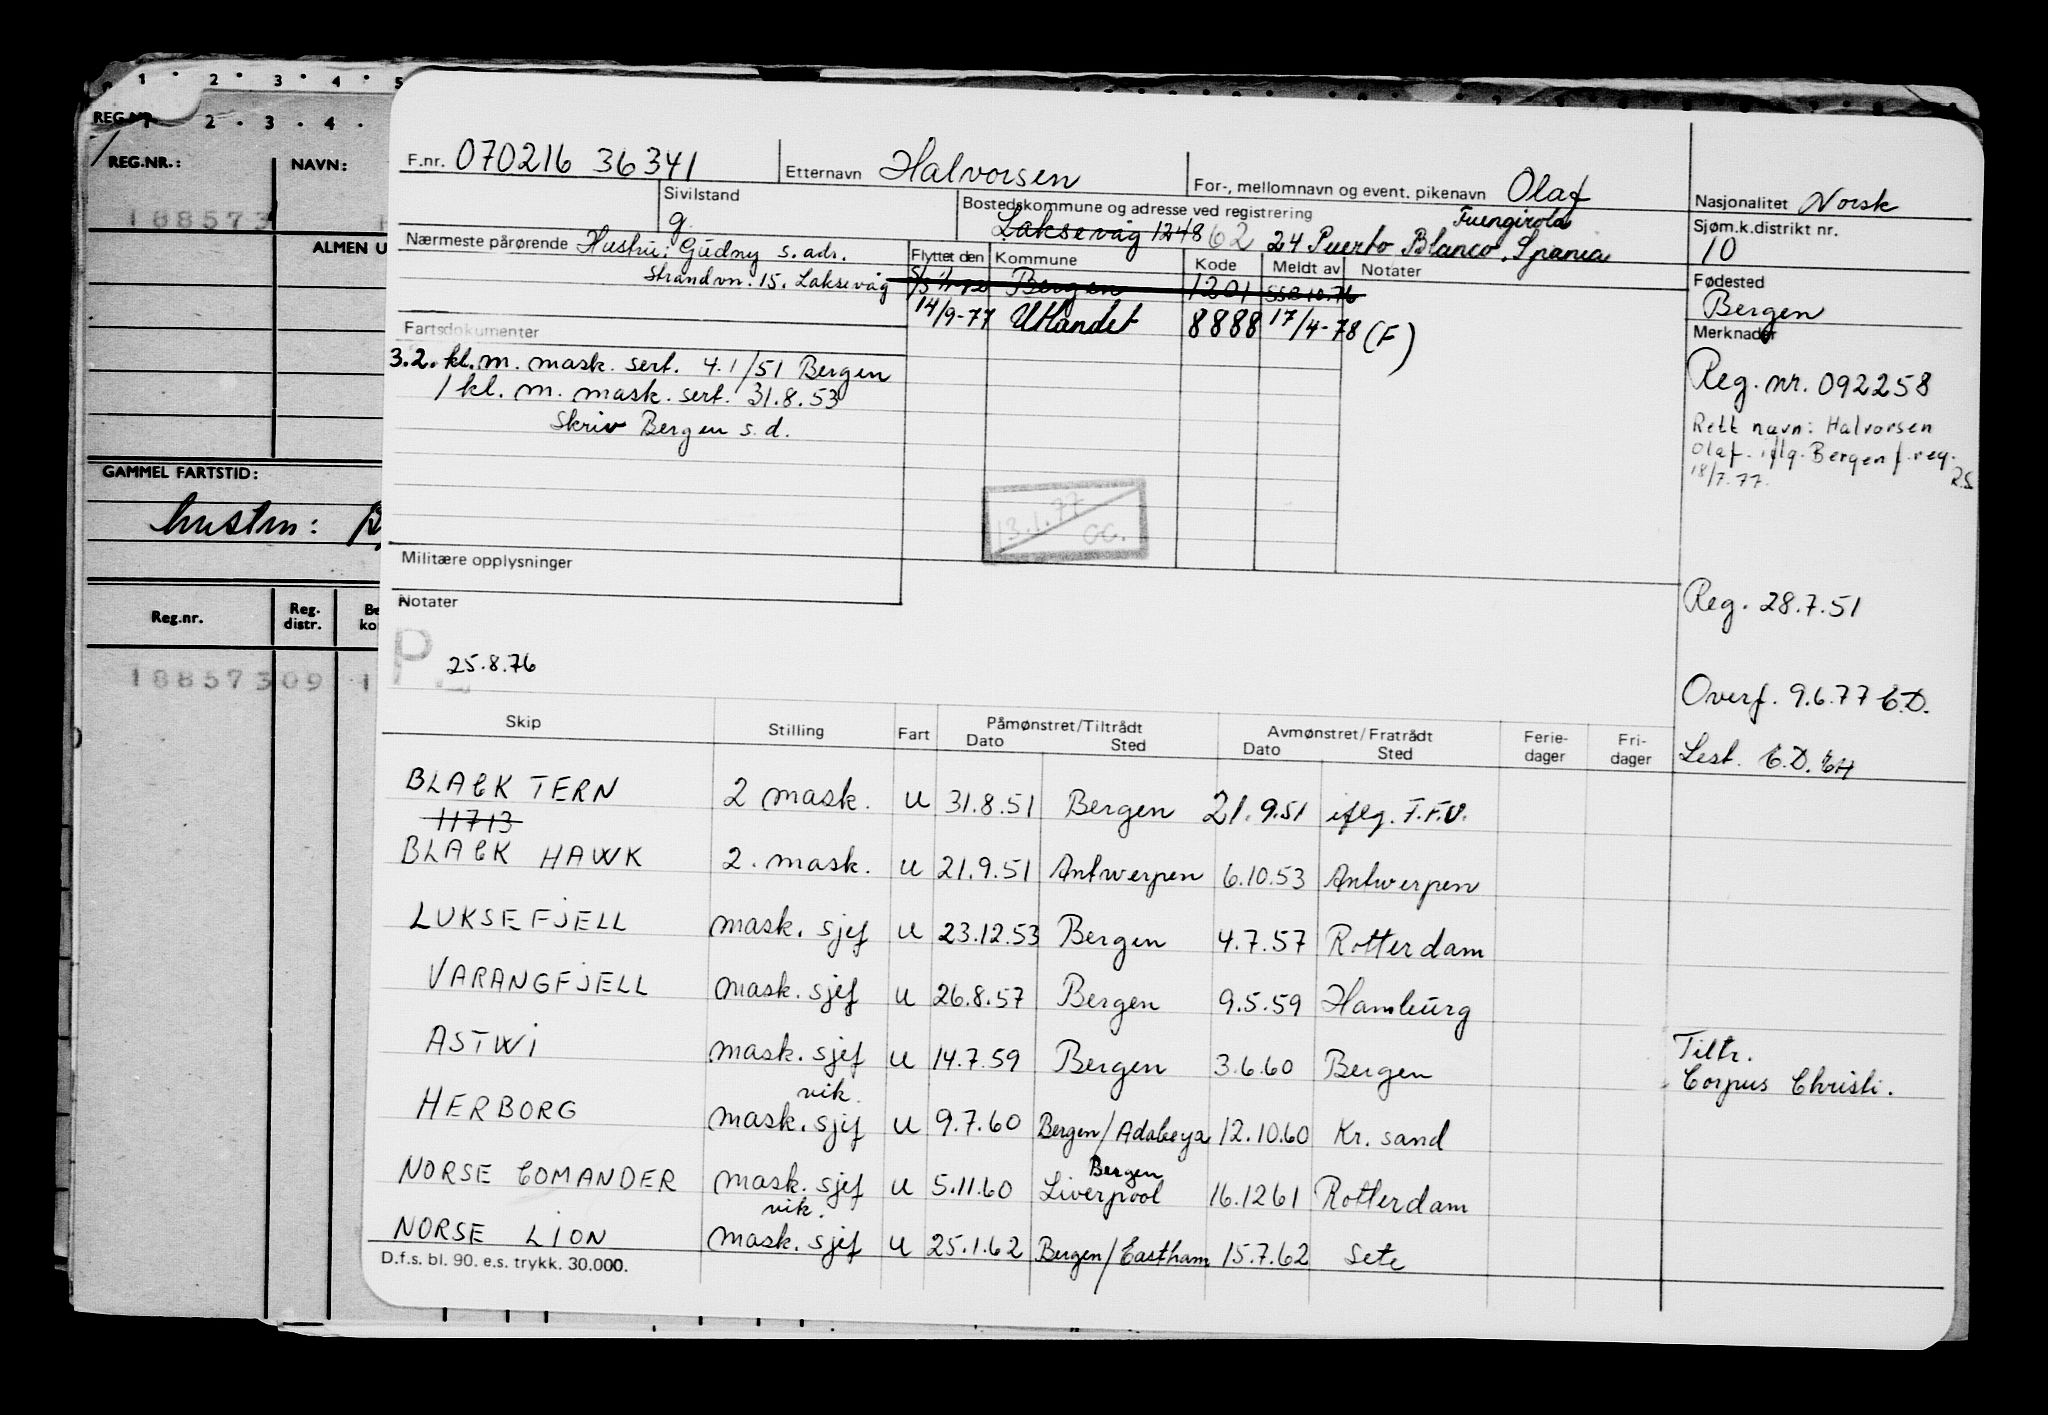 1 2 3 4 5
REG.NR.
1 2 3 4
REG.NR.: NAVN:
188573
ALMEN U
GAMMEL FARTSTID:
hustru:
Reg.nr. Reg. distr.
188573 09 1
F.nr. 070216 36341 Etternavn Halvorsen For-, mellomnavn og event. pikenavn Olaf
Nasjonalitet Norsk
Sivilstand
g.
Bostedskommune og adresse ved registrering Fuengirola
Laksevåg 1248 62 24 Puerto Blanco, Spania
Sjøm.k.distrikt nr.
10
Nærmeste pårørende Hustru: Gudny s. adr.
Strandvn. 15. Laksevåg
Flyttet den Kommune Kode Meldt av Notater
Bergen 1201 SSB 10.76
14/9-77 Utlandet 8888 17/4-78 (F)
Fødested
Bergen
Merknader
Fartsdokumenter
3.2. kl. m. mask. sert. 4.1/51 Bergen
1 kl. m. mask. sert. 31.8.53
Skriv Bergen s.d.
Reg. nr. 092258
Rett navn: Halvorsen
Olaf. iflg. Bergen f.reg.
18/7.77. R.S
13.1.77
OG.
Militære opplysninger
Notater
P 25.8.76
Reg. 28.7.51
Overf. 9.6.77 C.D.
Lest. C.D. EH
Skip Stilling Fart Påmønstret/Tiltrådt Avmønstret/Fratrådt Ferie- Fri-
Dato Sted Dato Sted dager dager
BLACK TERN 2 mask. U 31.8.51 Bergen 21.9.51 iflg. F.F.V.
11713
BLACK HAWK 2. mask. U 21.9.51 Antwerpen 6.10.53 Antwerpen
LUKSEFJELL mask. sjef U 23.12.53 Bergen 4.7.57 Rotterdam
VARANGFJELL mask. sjef U 26.8.57 Bergen 9.5.59 Hamburg
ASTWI mask. sjef U 14.7.59 Bergen 3.6.60 Bergen Tiltr. Corpus Christi.
vik.
HERBORG mask. sjef U 9.7.60 Bergen/Adabeya 12.10.60 Kr. sand
Bergen
NORSE COMANDER mask. sjef U 5.11.60 Liverpool 16.12 61 Rotterdam
vik.
NORSE LION mask. sjef U 25.1.62 Bergen/Eastham 15.7.62 Sete
D.f.s. bl. 90. e.s. trykk. 30.000.